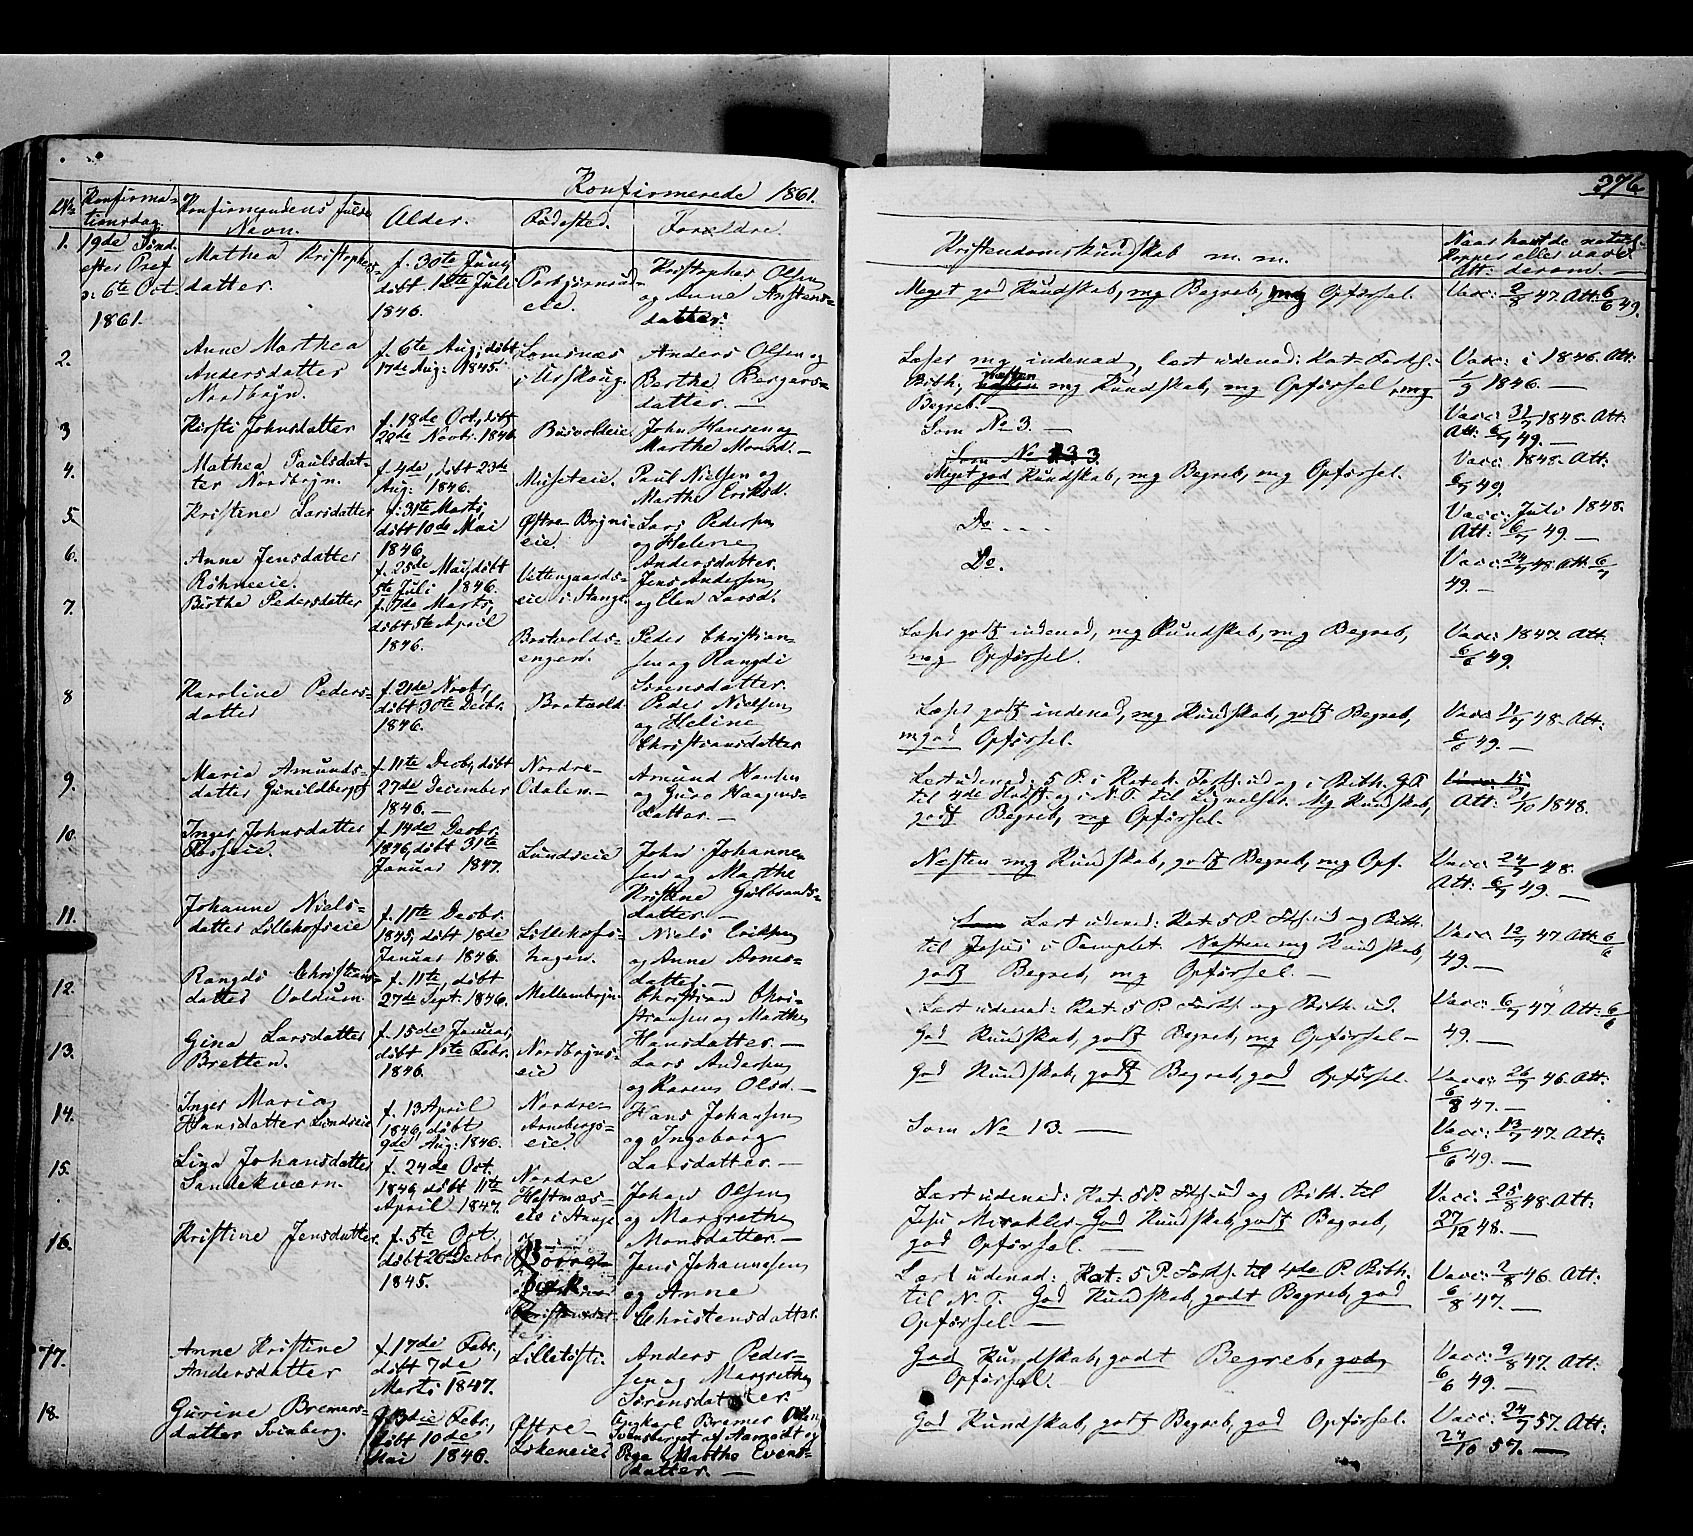 Konfirmerede 1861.
376
No Konfirma-
tionsdag.
Konfirmandens fulde
Navn.
Alder.
Fødested.
Forældre.
Kristendomskundskab m. m.
Naar havt de naturl.
Kopper eller vacc.
Att: derom.
1. 19de Sønd.
efter Præf
d: 6te Oct.
1861.
Mathea Kristophers-
datter.
f. 30te Juni,
døbt 12te Juli
1846.
eie.
Kristopher Olsen
og Anne Anstens-
datter.
Meget god Kundskab, mg Begreb, mg Opførsel.
Vacc: 2/8 47. Att: 6/6 49.
2.
Anne Marthea
Andersdatter
Nordbryn.
f. 6te Aug: døbt
17de Aug: 1845.
Lomsnæs
i Urskoug.
Anders Olsen og
Berthe Bergers-
datter. —
Læser mg indenad, læst udenad: Kat. Forkl.
Bibh; næsten mg Kundskab, mg Opførsel, mg
Begreb. —
Vacc: i 1846. Att:
1/9 1846. —
3
Kirsti Johnsdatter
f. 18de Oct, døbt
22de Novbr. 1846
John Hansen og
Marthe Monsd. —
Som No 3. —
Vacc: 31/7 1848. Att:
Att: 6/7 49. —
4.
Mathea Paulsdat-
ter Nordbryn.
f. 4de, døbt 23de
Aug: 1846.
Museteie.
Paul Nielsen og
Marthe Eriksd.
Som No 3.
Meget god Kundskab, mg Begreb, mg Opførsel.
Vacc: 1848. Att:
6/7 49.
5.
Kristine Larsdatter
f. 31te Marts,
døbt 10de Mai
1846.
Østre Bryni-
eie.
Lars Pedersen
og Helene
Andersdatter.
Do. - - -
Vacc: Juli 1848.
Att: 6/7 49. —
6.
Anne Jensdatter
Røhneeie.
f. 25de Mai, døbt
5te Juli 1846.
Vettengaards-
eie i Stange.
Jens Andersen
og Elen Larsd.
Do.
Vacc: 24/7 48. Att: 6/7
49. —
7.
Birthe Pedersdatter
f. 7de Marts,
døbt 5te April
1846.
Brotvolds-
engen.
Peder Christian-
sen og Rangdi
Sørensdatter.
Læser godt indenad, mg Kundskab, mg Begreb,
meg Opførsel.
Vacc: 1847. Att:
6/6 49.
8
Karoline Peders-
datter
f. 21de Novbr,
døbt 30te Decbr.
1846.
Brotvold
Peder Nielsen
og Heline
Christiansdatter
Læser godt indenad, mg Kundskab, godt Begreb,
mgod Opførsel.
Vacc: 11/7 48. Att:
6/6 49. —
9.
Maria Amunds-
datter Gunildberget
f. 11te Decb, døbt
27de December
1846. —
Nordre-
Odalen. —
Amund Hansen
og Guro Haagens-
datter. —
Læst udenad: 5 P. i Katek. Forkl. ud og i Bibh. G.T.
til 4de Hovdst. og i N. T. til Lignelser. Mg Kundskab,
godt Begreb, mg Opførsel.
Att: 21/10 1848.
10.
Inger Johnsdatter
f. 14de Decbr.
1846, døbt 31te
Januar 1847.
Lundseie
John Johanne-
sen og Marthe
Kristine Gulbrands-
datter. —
Næsten mg Kundskab, godt Begreb, mg Opf.
Vacc: 24/7 48.
Att: 6/7 49. —
11.
Johanne Niels-
datter Lillehofseie
f. 11te Decbr.
1845, døbt 18de
Januar 1846.
Lillehofs-
hagen.
Niels Eriksen
og Anne Arnes-
datter. —
Som Læst udenad: Kat. 5 P. Fkl. ud og Bibh.
til Jesus i Templet. Næsten mg Kundskab,
godt Begreb, mg Opførsel. —
Vacc: 12/7 47. Att: 6/6
49. —
12.
Rangdi Christians-
datter Voldum.
f. 11te, døbt
27de Sept. 1846.
Mellembryn
Christian Chri-
stiansen og Marthe
Hansdatter. —
Læst udenad: Kat. 5 P. Forkl. og Bibh. ud.
God Kundskab, godt Begreb, mg Opførsel —
Vacc: 6/7 47. Att: 6/6
49. —
13.
Gina Larsdatter
Bretten.
f. 15de Januar,
døbt 1ste Febr.
1846.
Nordbryns-
eie
Lars Andersen
og Karen Olsd. —
God Kundskab, godt Begreb, god Opførsel.
Vacc: 26/7 46. Att:
6/8 47. —
14.
Inger Maria
Hansdatter Lundseie
f. 13 April
1846, døbt
9de Aug: 1846.
Nordre-
Arnebergs-
eie.
Hans Johansen
og Ingeborg
Larsdatter. —
Som No 13. —
Vacc: 13/7 47. Att:
6/6 49. —
15.
Lina Johansdatter
Sandekværn.
f. 24de Oct.
1846, døbt 11te
April 1847.
Nordre
Hestnæs-
eie i Stange
Johan Olsen
og Margrethe
Monsdatter. —
Læst udenad: Kat. 5 P. Fkl. ud og Bibh. til
Jesu Mirakler. God Kundskab, godt Begreb,
god Opførsel. —
Vacc: 25/8 48. Att:
27/12 48. —
16.
Kristine Jensdatter.
f. 5te Oct.
døbt 26de Decbr
1845.
Jens Johannesen
og Anne
Christensdatter.
Læst udenad: Kat: 5 P. Forkl. til 4de P. Bibh.
til N. T. God Kundskab, godt Begreb, god
Opførsel. —
Vacc: 2/8 46. Att:
6/8 47. —
17.
Anne Kristine
Andersdatter
f. 17de Febr,
døbt 7de
Marts 1847.
Lilletøfte.
Anders Peder-
sen og Margrethe
Sørensdatter.
God Kundskab, godt Begreb, god
Opførsel. —
Vacc: 9/8 47. Att:
6/6 49. —
18.
Gurine Bremers-
datter Svenberg.
f. 13die Febr,
døbt 10de
Mai 1846.
Østre-
Lokeneie
Ungkarl Bremer Olsen
Svensberget af Narmost og
Pige Marthe Evens-
datter. —
God Kundskab, godt Begreb, god Opførsel.
Vacc: 24/7 57. Att:
24/10 57. —